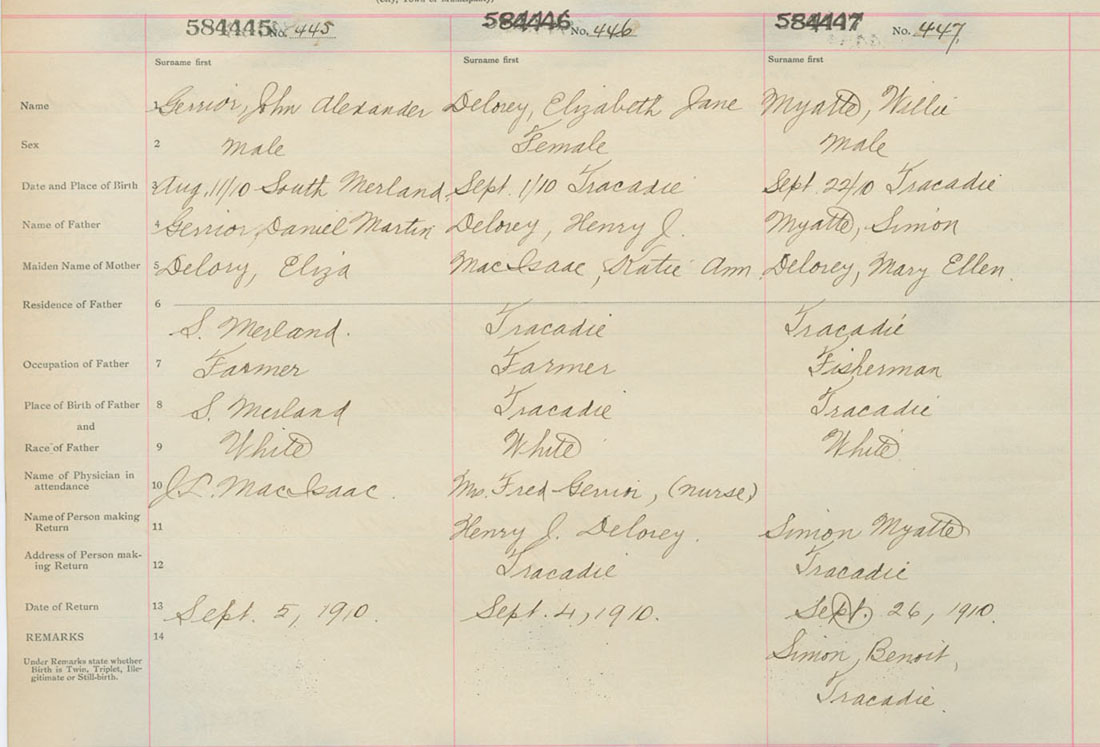 (City, Town or Municipality)
584445 No. 445 584446 No. 446 584447 No. 447
Surname first Surname first Surname first
Name 1 Gerrior, John Alexander Delorey, Elizabeth Jane Myatte, Willie
Sex 2 Male Female Male
Date and Place of Birth 3 Aug. 11/10 South Merland. Sept. 1/10 Tracadie Sept. 22/10 Tracadie
Name of Father 4 Gerrior, Daniel Martin Delorey, Henry J. Myatte, Simon
Maiden Name of Mother 5 Delory, Eliza MacIsaac, Katie Ann Delorey, Mary Ellen.
Residence of Father 6
S. Merland. Tracadie Tracadie
Occupation of Father 7 Farmer Farmer Fisherman
Place of Birth of Father 8 S. Merland Tracadie Tracadie
and
Race of Father 9 White White White
Name of Physician in
attendance 10 J.L. MacIsaac. Mrs. Fred Gerrior, (nurse)
Name of Person making
Return 11 Henry J. Delorey. Simon Myatte
Address of Person mak-
ing Return 12 Tracadie Tracadie
Date of Return 13 Sept. 5, 1910. Sept. 4, 1910. Sept. 26, 1910.
REMARKS 14
Under Remarks state whether
Birth is Twin, Triplet, Ille-
gitimate or Still-birth.
Simon, Benoit,
Tracadie.